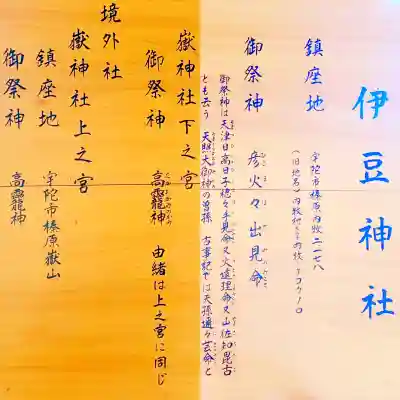 伊豆神社
鎮座地
宇陀市榛原内牧二一七八
御祭神
彦火々出見命
御祭神は天津日高日子穂々手見命又火遠理命又山佐知毘古
とも云う 天照大御神の曽孫 古事記では天孫邇々芸命と
嶽神社下之宮
御祭神
高龗神
由緒は上之宮に同じ
境外社
嶽神社上之宮
鎮座地
宇陀市榛原嶽山
御祭神
高龗神